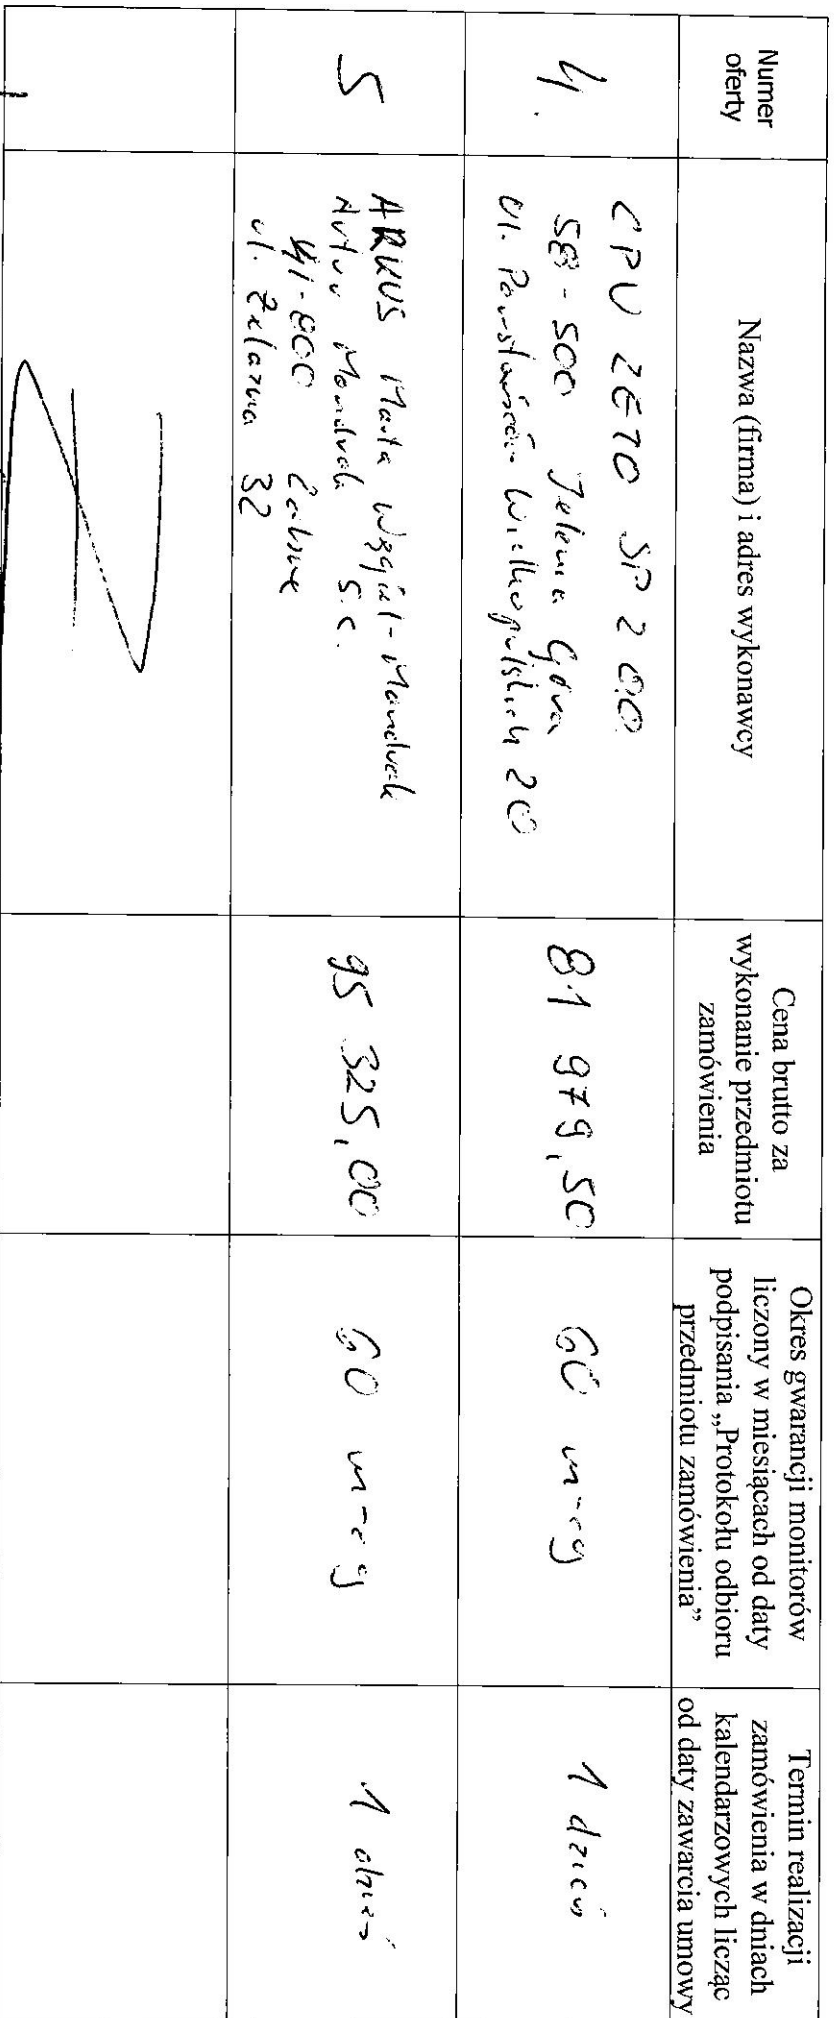 Numer
oferty
Nazwa (firma) i adres wykonawcy
Cena brutto za
wykonanie przedmiotu
zamówienia
Okres gwarancji monitorów
liczony w miesiącach od daty
podpisania „Protokołu odbioru
przedmiotu zamówienia”
Termin realizacji
zamówienia w dniach
kalendarzowych licząc
od daty zawarcia umowy
4.
CPU ZETO SP Z O.O.
58-500 Jelenia Góra
Ul. Powstańców Wielkopolskich 20
81 979,50
60 m-cy
1 dzień
5
ARKUS Marta Węgiel-Mandrak
Artur Mandrak s.c.
41-800 Zabrze
ul. Żelazna 32
95 325,00
60 m-cy
1 dzień